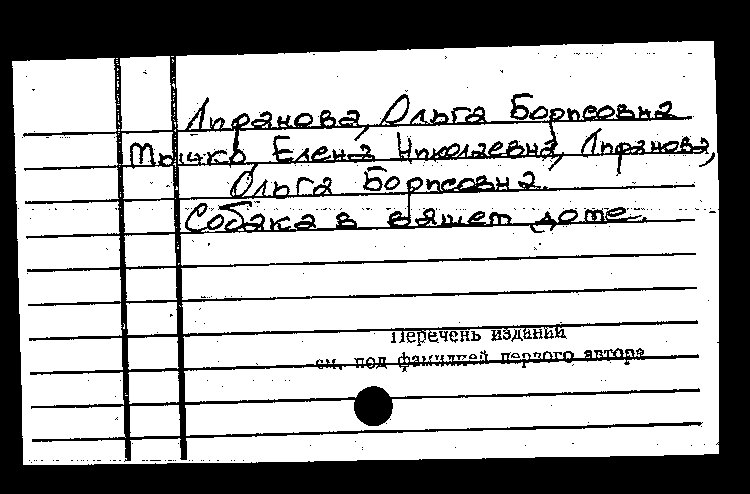 Лифанова, Ольга Борисовна
Мычко, Елена Николаевна, Лифанова,
Ольга Борисовна.
Собака в вашем доме.
Перечень изданий
см. под фамилией первого автора